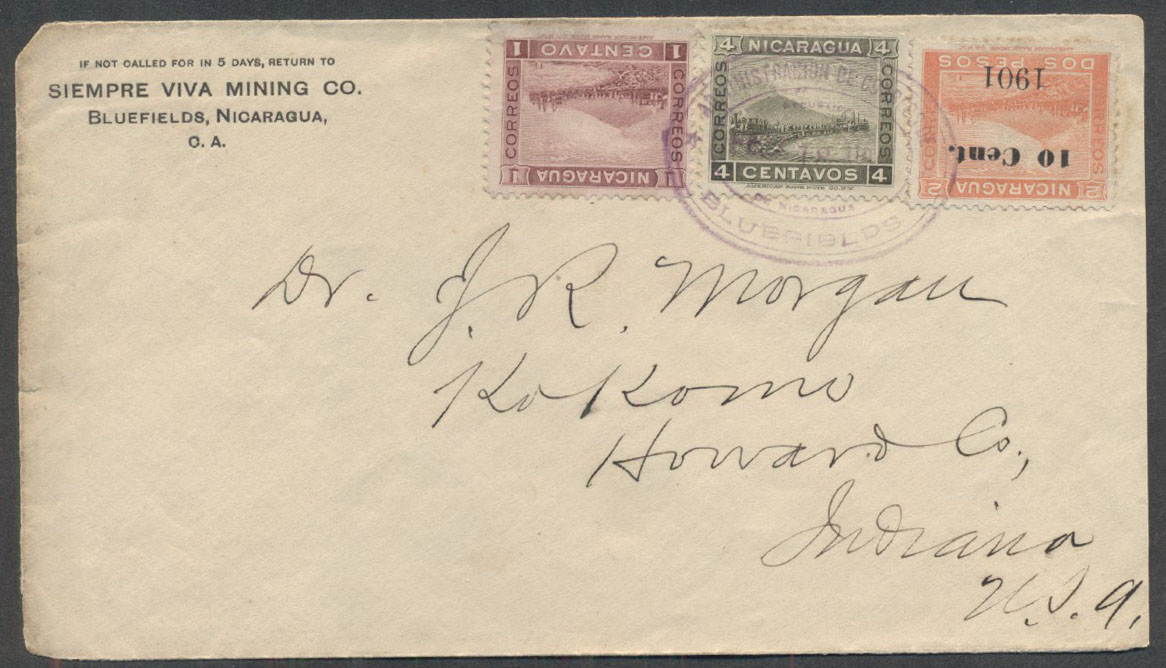 IF NOT CALLED FOR IN 5 DAYS, RETURN TO
SIEMPRE VIVA MINING CO.
BLUEFIELDS, NICARAGUA,
C. A.
1 CENTAVO 1
CORREOS
CORREOS
1 NICARAGUA 1
4 NICARAGUA 4
CORREOS
CORREOS
4 CENTAVOS 4
AMERICAN BANK NOTE CO. N.Y.
DOS PESOS
1901
10 Cent.
CORREOS
2 NICARAGUA 2
ADMINISTRACION DE
REPUBLICA
DE NICARAGUA
BLUEFIELDS
Dr. J. R. Morgan
Kokomo
Howard Co.,
Indiana
U. S. A.